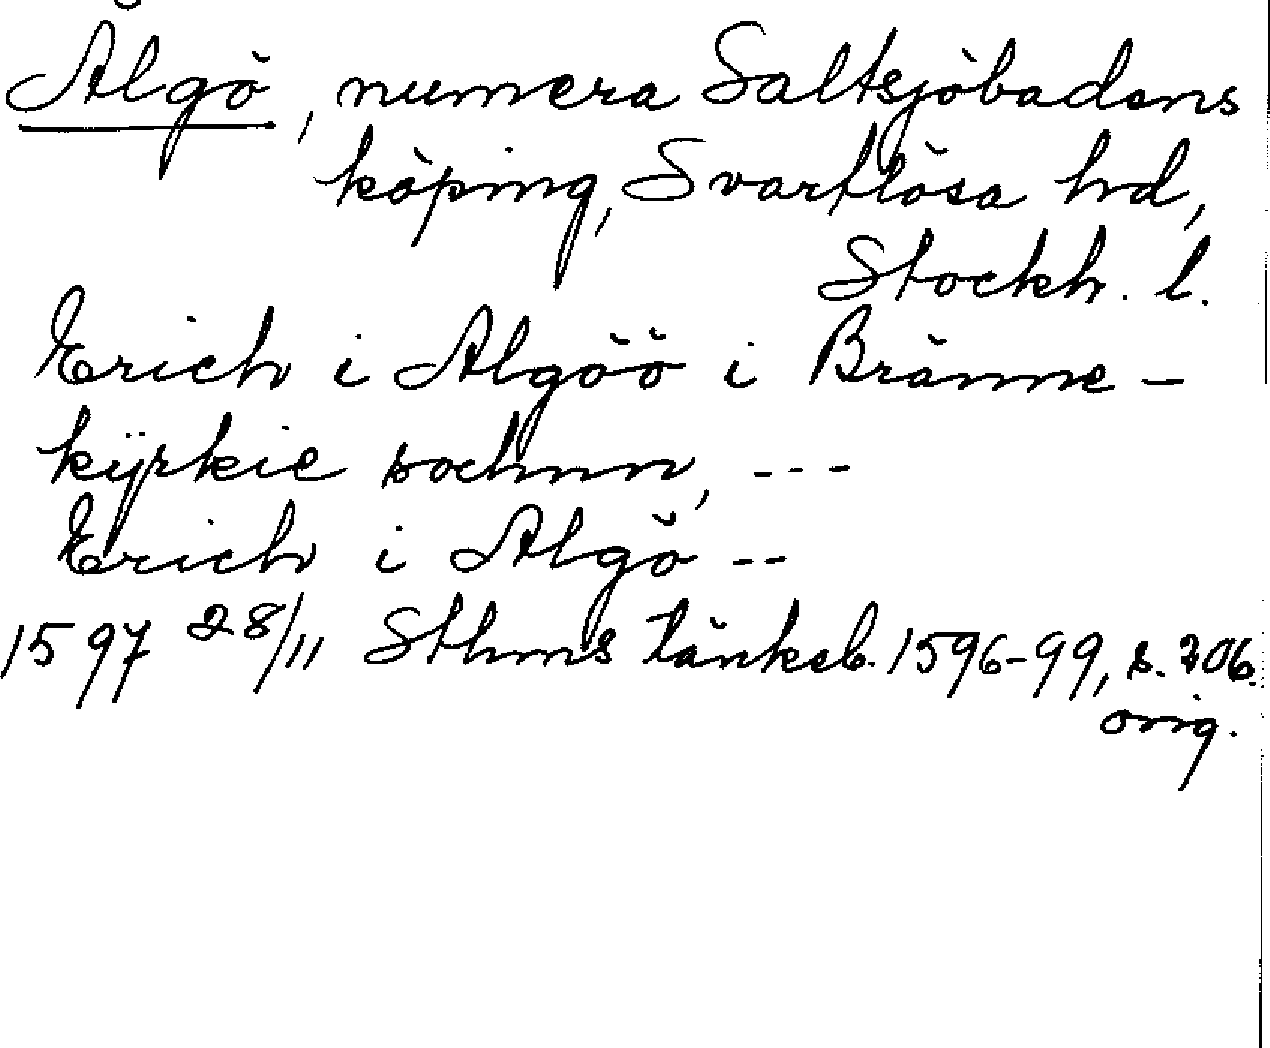 Ålgö, numera Saltsjöbadens
köping, Svartlösa hd,
Stockh. l.
Erich i Algöö i Bränne-
kÿrkie sochnn, ---
Erich i Algö --
1597 28/11 Sthms tänkeb. 1596-99, s. 206.
orig.